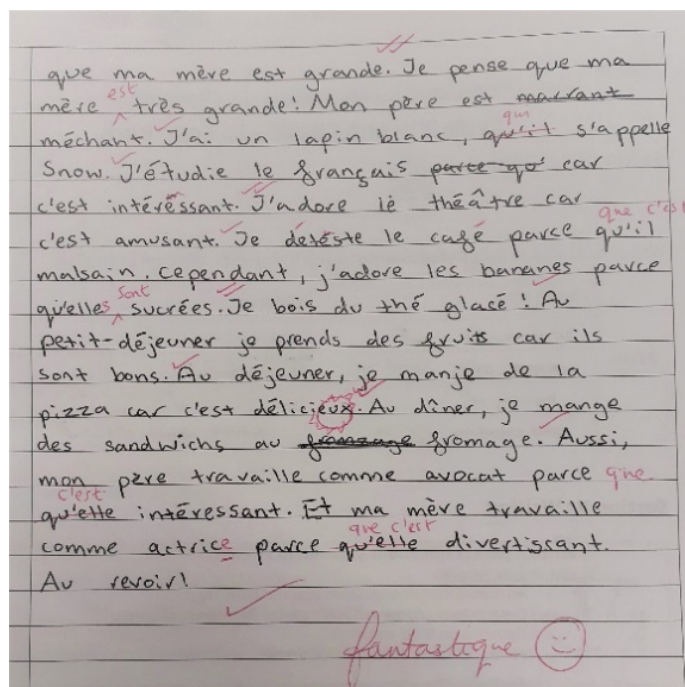 que ma mère est grande. Je pense que ma
est
mère très grande! Mon père est marrant
méchant. J'ai un lapin blanc, qu'il s'appelle
qui
Snow. J'étudie le français parce qu' car
c'est intéressant. J'adore le théâtre car
que c'est
c'est amusant. Je détéste le café parce qu'il
malsain. Cependant, j'adore les bananes parce
sont
qu'elles sucrées. Je bois du thé glacé! Au
petit-déjeuner je prends des fruits car ils
sont bons. Au déjeuner, je manje de la
pizza car c'est délicieux. Au dîner, je mange
des sandwichs au fromage. Aussi,
mon père travaille comme avocat parce que
c'est
qu'elle intéressant. Et ma mère travaille
que c'est
comme actrice parce qu'elle divertissant.
Au revoir!
fantastique